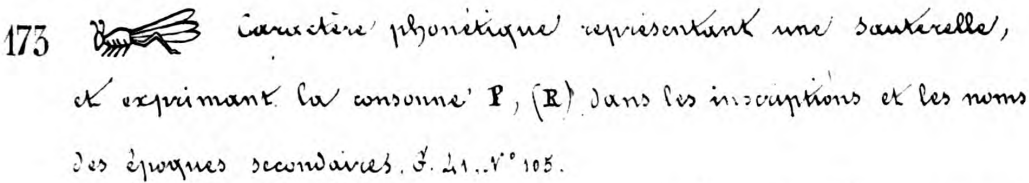 173 Caractère phonétique représentant une sauterelle,
et exprimant la consonne P, (R) dans les inscriptions et les noms
des époques secondaires. G. 41. N° 105.